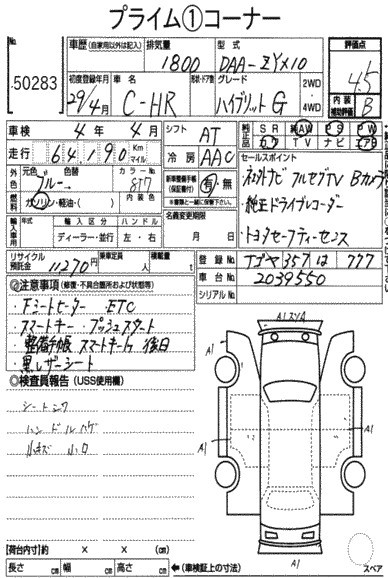 プライム①コーナー
No.
50283
車歴 (自家用以外は記入)
排気量
1800
型式
DAA-ZYX10
評価点
4.5
内装補助評価
B
初度登録年月
29/4月
車名
C-HR
形状・ドア数
グレード
ハイブリット G
2WD
・
4WD
車検 4年 4月
シフト AT
走行 64,190 Km マイル
冷房 AAC
外色 元色 ブルー 色替
カラーNo. 8T7
内装色
燃料 ガソリン・軽油・( )
新車整備手帳 (保証書付) 有・無
名義変更期限
月 日
SR 純AW PS PW
カワ TV ナビ エアB
セールスポイント
・純正ナビ フルセグTV Bカメラ
・純正ドライブレコーダー
・トヨタセーフティーセンス
輸入車用 年式 輸入区分 ハンドル
ディーラー・並行 左・右
リサイクル預託金 11270円
乗車定員 人
積載量 t
登録No. 357 は 777
車台No. 2039550
シリアルNo.
◎注意事項 (修復・不具合箇所および状態等)
Fシートヒーター ETC
スマートキー プッシュスタート
整備手帳 スマートキー 後日
黒レザーシート
◎検査員報告 (USS使用欄)
シートシワ
ハンドルハゲ
小キズ 小凹
A1
A1
A1
A1
A1
[荷台内寸]約 × ×
長さ cm 幅 cm 高さ cm
(車検証上の寸法)
スペア